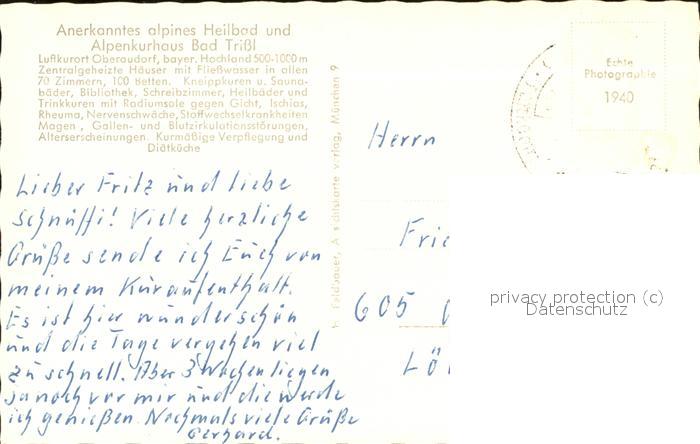 Anerkanntes alpines Heilbad und
Alpenkurhaus Bad Trißl
Luftkurort Oberaudorf, bayer. Hochland 500-1000 m
Zentralgeheizte Häuser mit Fließwasser in allen
70 Zimmern, 100 Betten. Kneippkuren u. Sauna-
bäder, Bibliothek, Schreibzimmer, Heilbäder und
Trinkkuren mit Radiumsole gegen Gicht, Ischias,
Rheuma, Nervenschwäche, Stoffwechselkrankheiten
Magen-, Gallen- und Blutzirkulationsstörungen,
Alterserscheinungen. Kurmäßige Verpflegung und
Diätküche
Lieber Fritz und liebe
Schnuffi! Viele herzliche
Grüße sende ich Euch von
meinem Kuraufenthalt.
Es ist hier wunderschön
und die Tage vergehen viel
zu schnell. Aber 3 Wochen liegen
ja noch vor mir und die werde
ich genießen. Nochmals viele Grüße
Gerhard.
Feldbauer, Ansichtskartenverlag, München 9
Echte
Photographie
1940
Herrn
Frie
605
LÖ
privacy protection (c)
Datenschutz